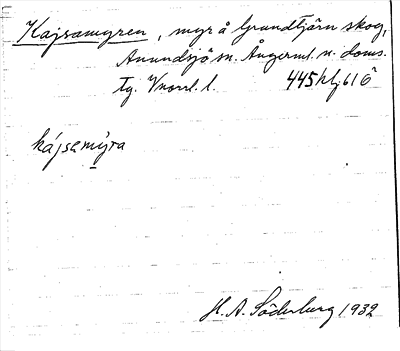 Kajsamyren, myr å Grundtjärn skog,
Anundsjö sn. Ångerml. n. doms.
tg. Vnorrl. l. 445 hlj 61 ö
kájsemỳra
H. A. Söderberg 1932